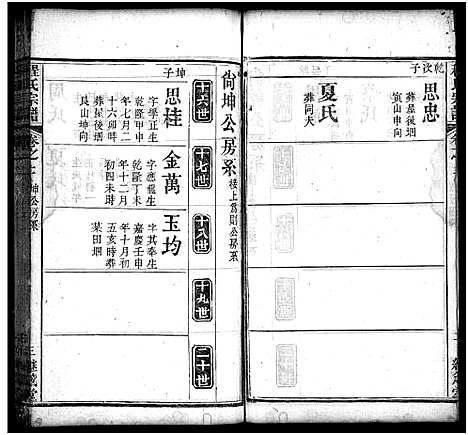 乾汝子
思忠
葬屋後堌
寅山申向
夏氏
葬同夫
尙坤公房系
接上爲則公房系
十六世
十七世
十八世
十九世
二十世
坤子
思桂
字學正生
乾隆甲申
年七月二
十六卯時
葬屋後堌
艮山坤向
金萬
字應龍生
乾隆丁未
年十二月
初四未時
玉均
字其奉生
嘉慶壬申
年十月初
五亥時葬
菜田堌
程氏宗譜
坤公房系
三